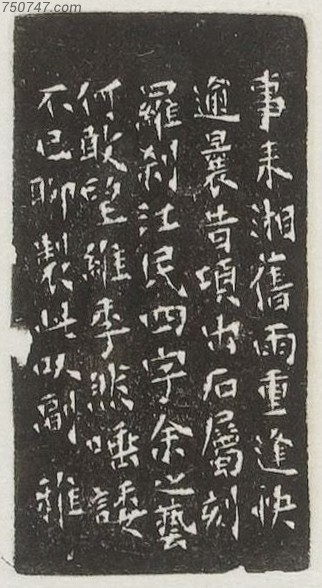 750747.com
事来湘舊雨重逢快
逾曩昔項出石屬刻
羅刹江民四字余之藝
何敢望維季然唾諉
不已聊製此以副雅